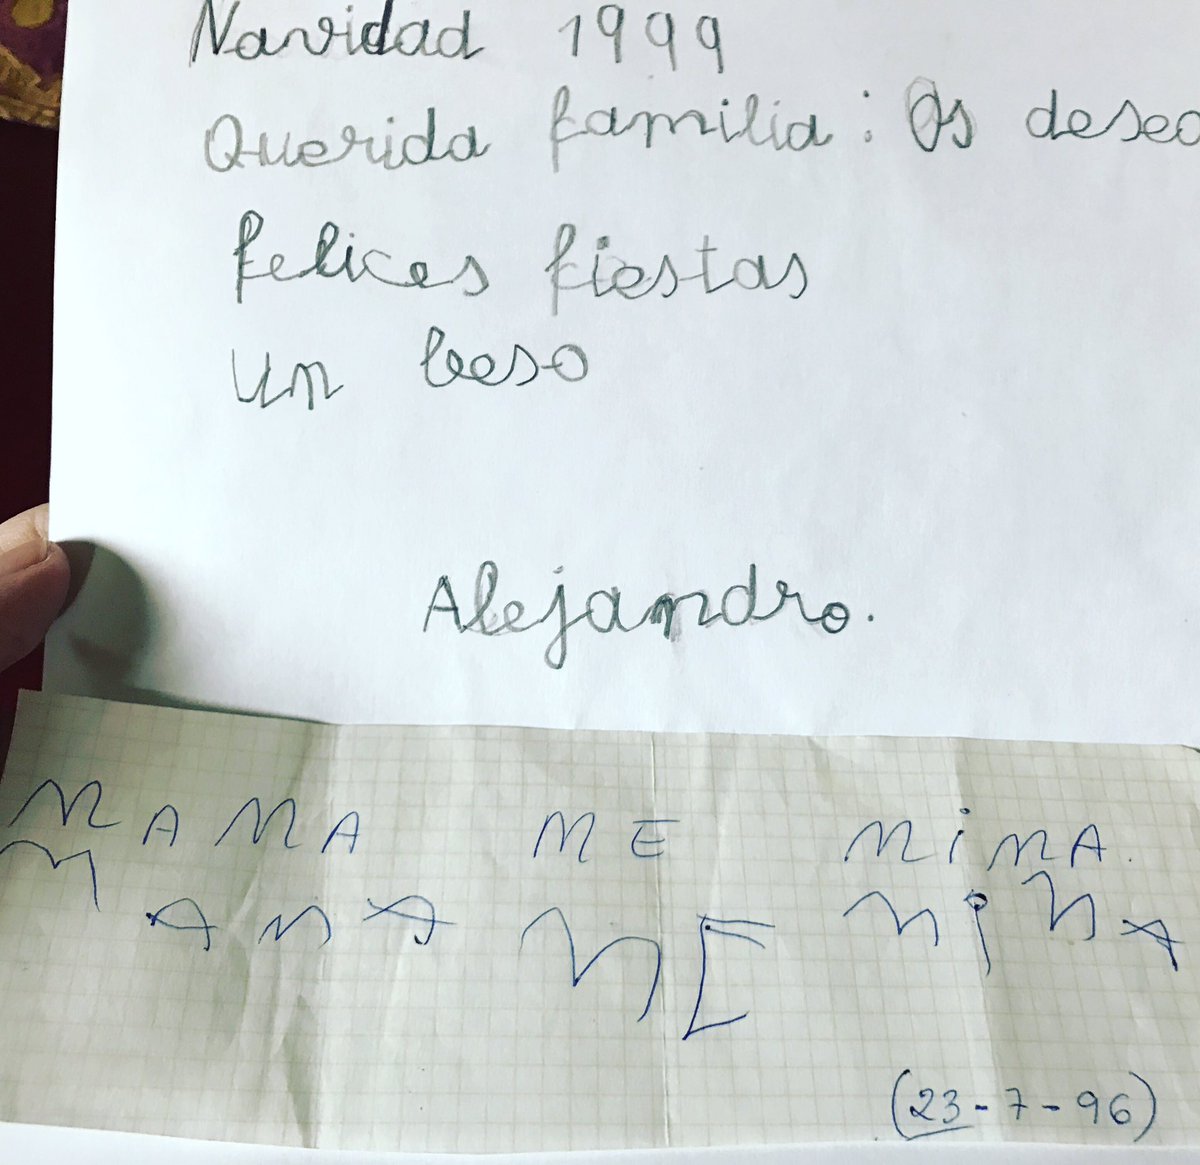 Navidad 1999
Querida familia: Os deseo
felices fiestas
un beso
Alejandro.
MAMA ME MiMA.
MAMA ME MiMA
(23-7-96)